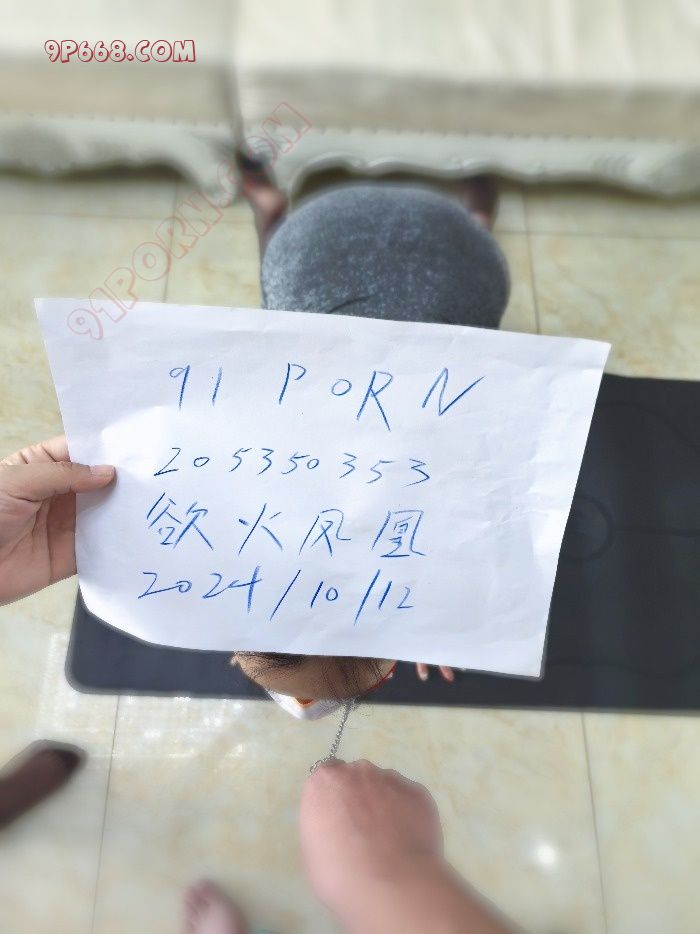 9P668.COM
91PORN.COM
91 PORN
205350353
欲火凤凰
2024/10/12